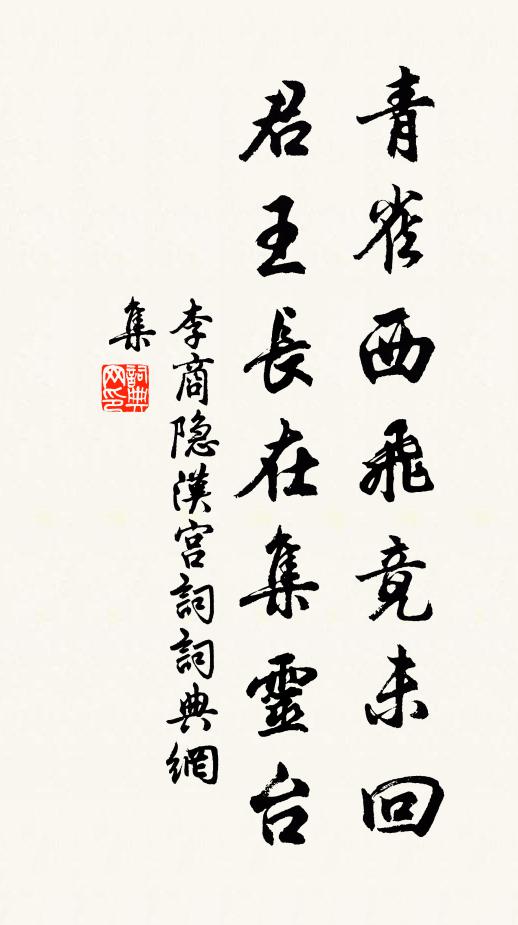 青雀西飛竟未回
君王長在集靈台
李商隐漢宮詞詞典網
集
詞典
网印